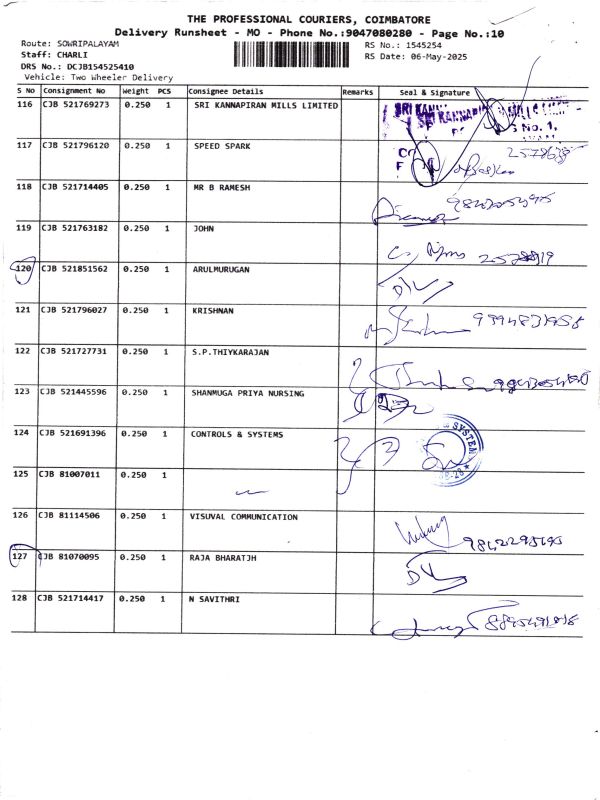 THE PROFESSIONAL COURIERS, COIMBATORE
Delivery Runsheet - MO - Phone No.:9047080280 - Page No.:10
Route: SOWRIPALAYAM RS No.: 1545254
Staff: CHARLI RS Date: 06-May-2025
DRS No.: DCJB154525410
Vehicle: Two Wheeler Delivery
S No Consignment No Weight PCS Consignee Details Remarks Seal & Signature
116 CJB 521769273 0.250 1 SRI KANNAPIRAN MILLS LIMITED
117 CJB 521796120 0.250 1 SPEED SPARK
118 CJB 521714405 0.250 1 MR B RAMESH
119 CJB 521763182 0.250 1 JOHN
120 CJB 521851562 0.250 1 ARULMURUGAN
121 CJB 521796027 0.250 1 KRISHNAN
122 CJB 521727731 0.250 1 S.P.THIYKARAJAN
123 CJB 521445596 0.250 1 SHANMUGA PRIYA NURSING
124 CJB 521691396 0.250 1 CONTROLS & SYSTEMS
125 CJB 81007011 0.250 1
126 CJB 81114506 0.250 1 VISUVAL COMMUNICATION
127 CJB 81070095 0.250 1 RAJA BHARATJH
128 CJB 521714417 0.250 1 N SAVITHRI